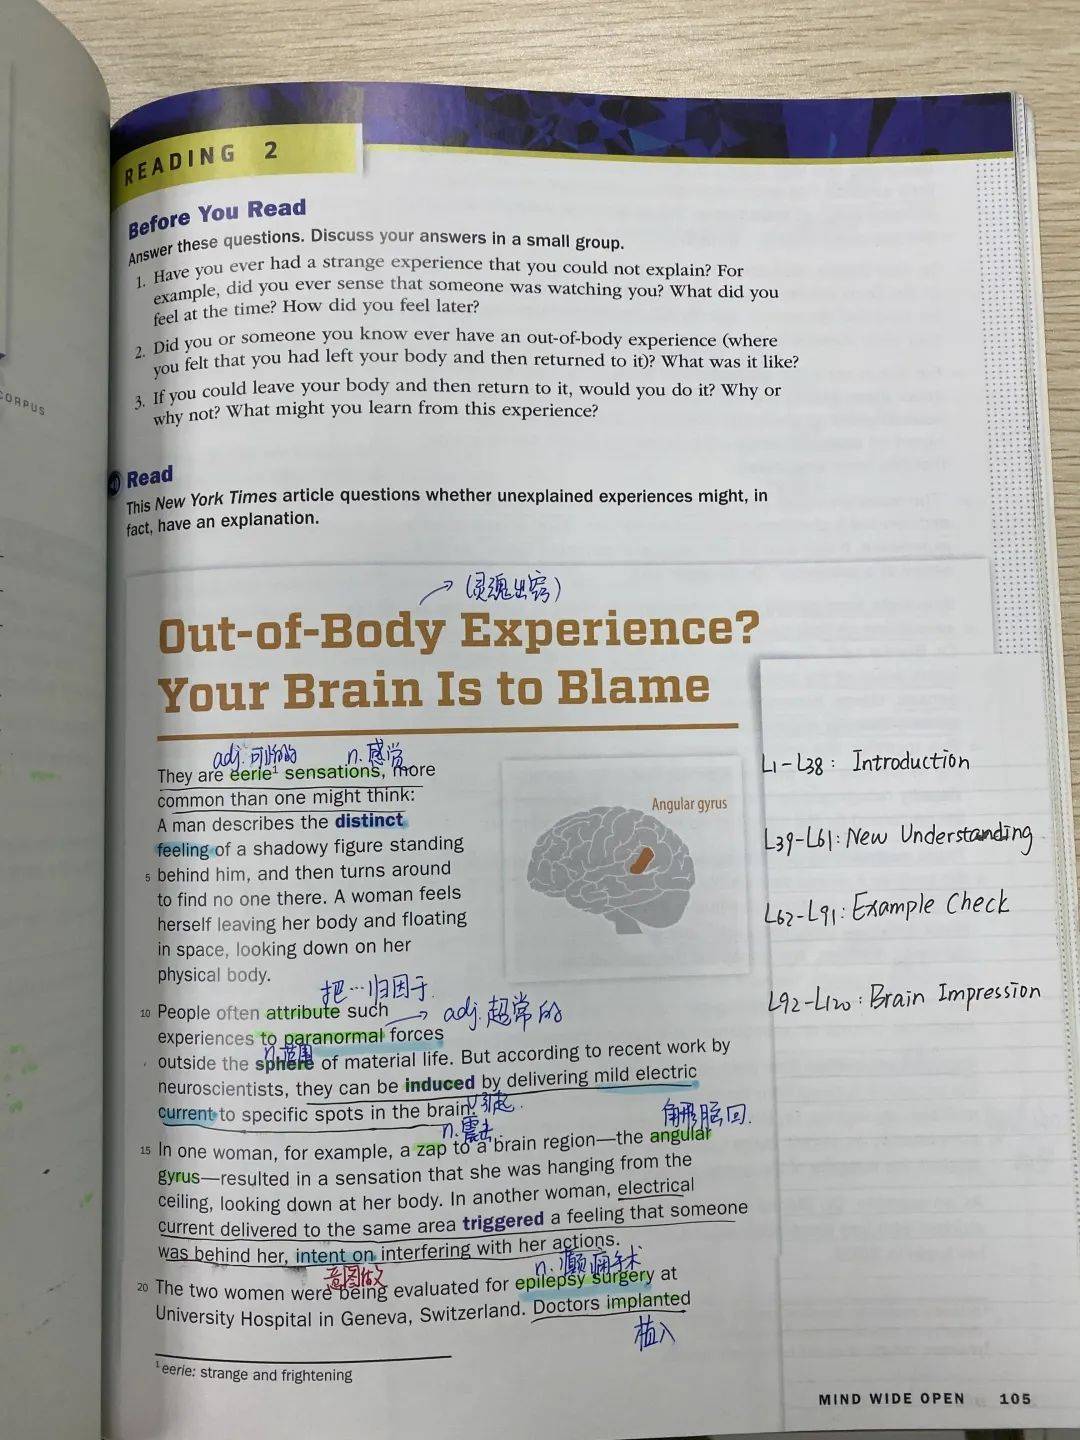 CORPUS
READING 2
Before You Read
Answer these questions. Discuss your answers in a small group.
1. Have you ever had a strange experience that you could not explain? For
example, did you ever sense that someone was watching you? What did you
feel at the time? How did you feel later?
2. Did you or someone you know ever have an out-of-body experience (where
you felt that you had left your body and then returned to it)? What was it like?
3. If you could leave your body and then return to it, would you do it? Why or
why not? What might you learn from this experience?
Read
This New York Times article questions whether unexplained experiences might, in
fact, have an explanation.
→ (灵魂出窍)
Out-of-Body Experience?
Your Brain Is to Blame
adj. 可怕的 n. 感觉
They are eerie¹ sensations, more
common than one might think:
A man describes the distinct
feeling of a shadowy figure standing
5 behind him, and then turns around
to find no one there. A woman feels
herself leaving her body and floating
in space, looking down on her
physical body.
Angular gyrus
把…归因于
10 People often attribute such
→ adj. 超常的
experiences to paranormal forces
n. 范围
outside the sphere of material life. But according to recent work by
neuroscientists, they can be induced by delivering mild electric
current to specific spots in the brain.
v. 引起.
n. 震击. 角形脑回.
15 In one woman, for example, a zap to a brain region—the angular
gyrus—resulted in a sensation that she was hanging from the
ceiling, looking down at her body. In another woman, electrical
current delivered to the same area triggered a feeling that someone
was behind her, intent on interfering with her actions.
意图做 n. 癫痫手术
20 The two women were being evaluated for epilepsy surgery at
University Hospital in Geneva, Switzerland. Doctors implanted
植入
¹ eerie: strange and frightening
L1-L38: Introduction
L39-L61: New Understanding
L62-L91: Example Check
L92-L120: Brain Impression
MIND WIDE OPEN 105